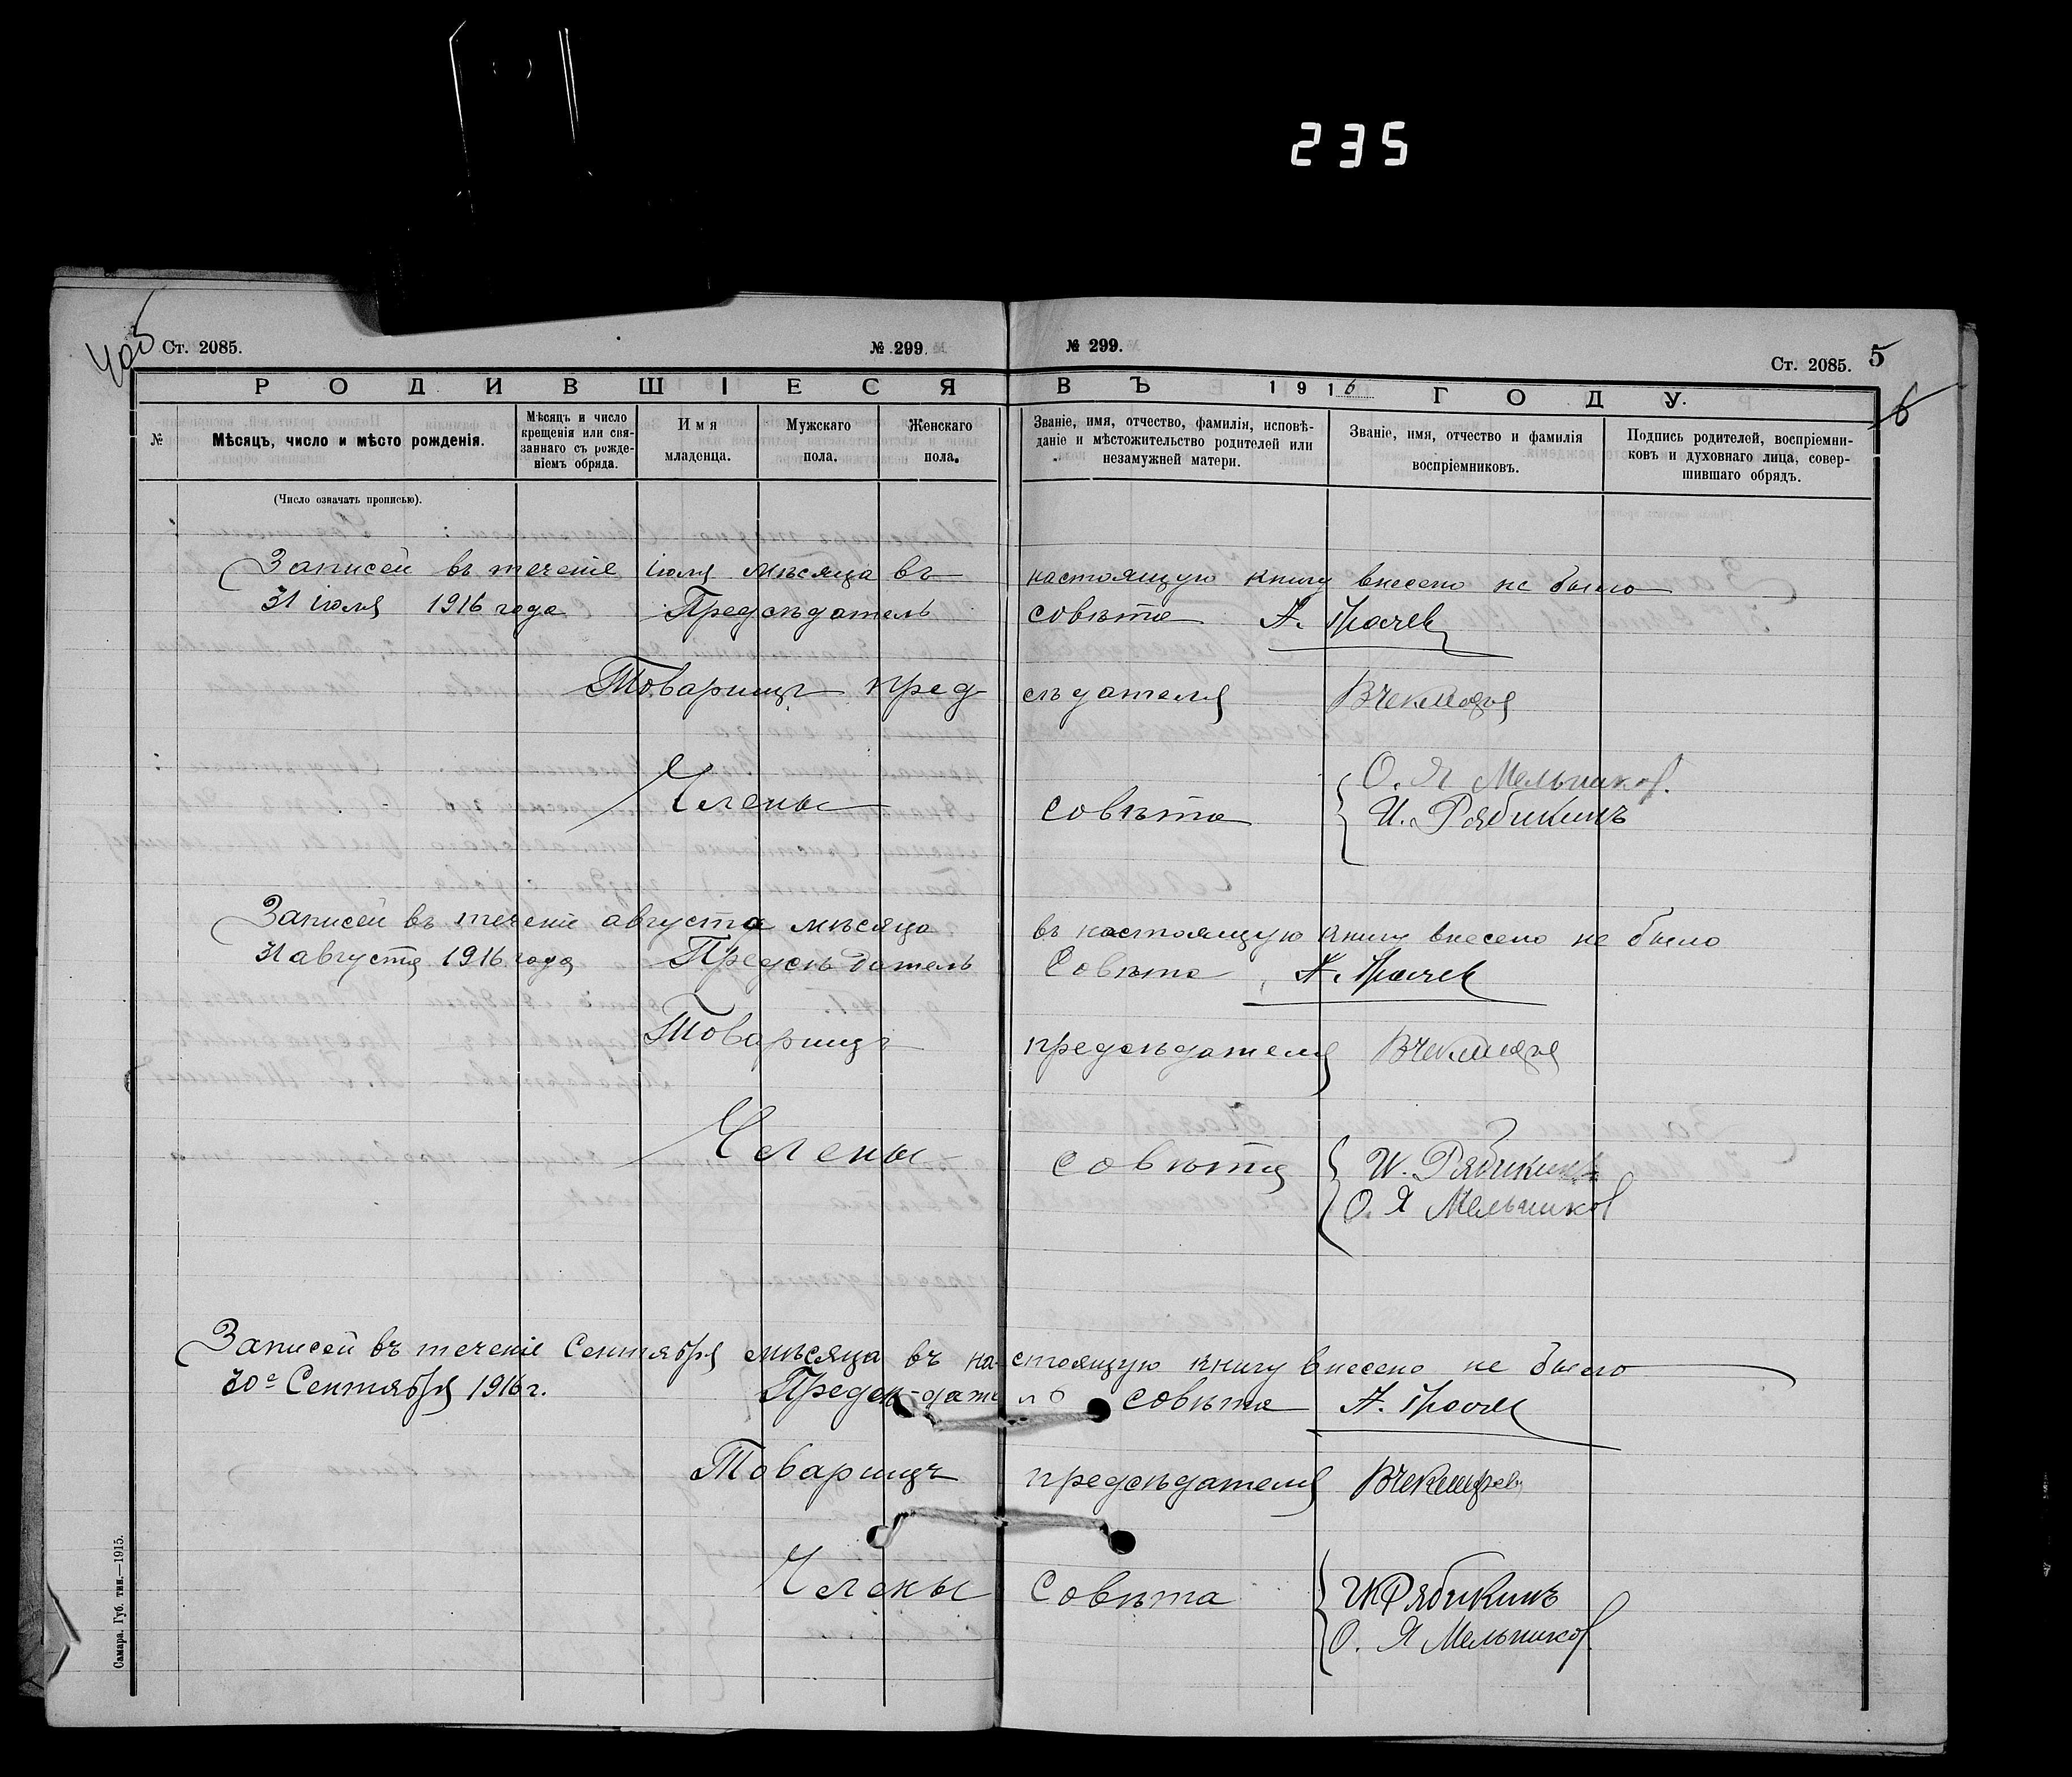 235
405
Ст. 2085. № 299. № 299. Ст. 2085. 5
Р О Д И В Ш І Е С Я В Ъ 1916 Г О Д У.
6
№
Мѣсяцъ, число и мѣсто рожденія.
(Число означать прописью).
Мѣсяцъ и число
крещенія или свя-
заннаго съ рожде-
ніемъ обряда.
Имя
младенца.
Мужскаго
пола.
Женскаго
пола.
Званіе, имя, отчество, фамилія, исповѣ-
даніе и мѣстожительство родителей или
незамужней матери.
Званіе, имя, отчество и фамилія
воспріемниковъ.
Подпись родителей, воспріемни-
ковъ и духовнаго лица, совер-
шившаго обрядъ.
Записей въ теченіе іюля мѣсяца въ настоящую книгу внесено не было
31 іюля 1916 года Предсѣдатель совѣта А. Грачев
Товарищъ предсѣдателя
Члены совѣта О. Я Мельников.
И. Рябикинъ
Записей въ теченіе августа мѣсяца въ настоящую книгу внесено не было
31 августа 1916 года Предсѣдатель Совѣта А. Грачев
Товарищъ предсѣдателя
Члены совѣта И. Рябикинъ
О. Я Мельников
Записей въ теченіе Сентября мѣсяца въ настоящую книгу внесено не было
30е Сентября 1916 г. Предсѣдатель совѣта А. Грачев
Товарищъ предсѣдателя
Члены Совѣта И Рябикинъ
О. Я Мельников
Самара. Губ. тип.—1915.